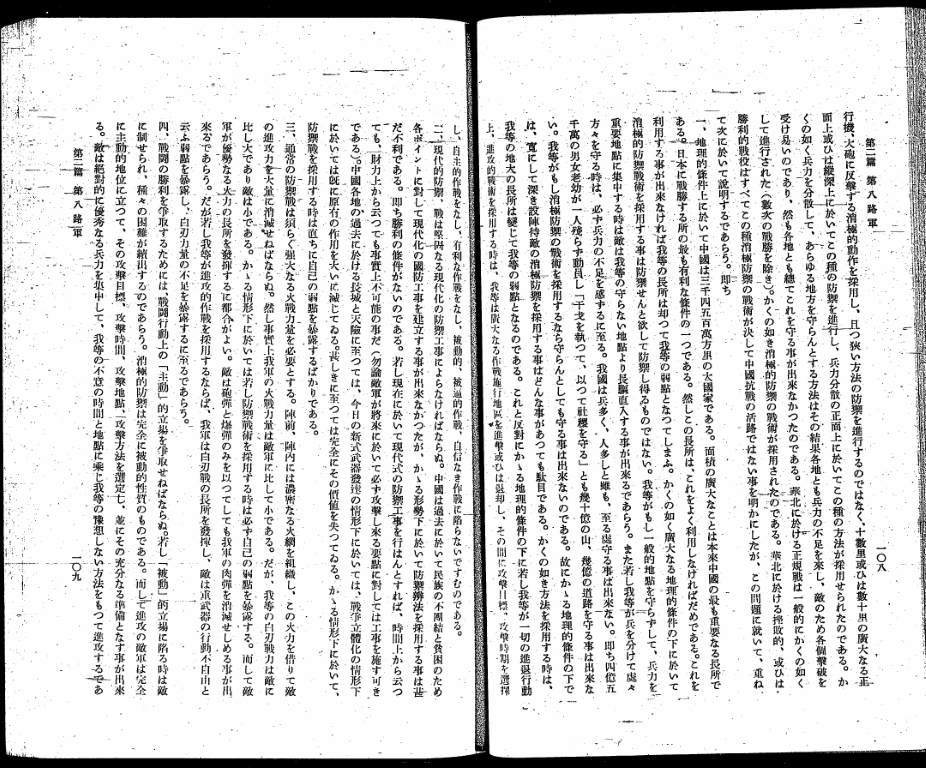 第二篇 第八路軍
一〇八
行機、大砲に反擊する消極的動作を採用し、且つ狹い方法の防禦を進行するのではなく、十數里或ひは數十里の廣大なる正
面上或ひは縱深上に於いてこの種の防禦を進行し、兵力分散の正面上に於いてこの種の方法が採用せられたのである。か
くの如く兵力を分散して、あらゆる地方を守らんとする方法はその結果各地とも兵力の不足を來し、敵のため各個擊破を
受け易いのであり、然も各地とも總てこれを守る事が出來なかつたのである。華北に於ける正規戰は一般的にかくの如く
して進行された（數次の戰勝を除き）。かくの如き消極的防禦の戰術が採用されたのである。華北に於ける挫敗的、或ひは
勝利的戰役はすべてこの種消極防禦の戰術が決して中國抗戰の活路ではない事を明かにしたが、この問題に就いて、重ね
て次に於いて說明するであらう。卽ち
一、地理的條件上に於いて中國は三千四五百萬方里の大國家である。面積の廣大なことは本來中國の最も重要なる長所で
ある。日本に戰勝する所の最も有利な條件の一つである。然しこの長所は、これをよく利用しなければだめである。これを
利用する事が出來なければ我等の長所は却つて我等の弱點となつてしまふ。かくの如く廣大なる地理的條件の下に於いて
消極的防禦戰術を採用する事は防禦せんと欲して防禦し得るものではない。我等がもし一般的地點を守らずして、兵力を
重要地點に集中する時は敵は我等の守らない地點より長驅直入する事が出來るであらう。また若し我等が兵を分けて處々
方々を守る時は、必ず兵力の不足を感ずるに至る。我國は兵多く、人多しと雖も、至る處守る事は出來ない。卽ち四億五
千萬の男女老幼が一人殘らず動員し「干戈を執つて、以つて社稷を守る」とも幾十億の山、幾億の道路を守る事は出來な
い。我等がもし消極防禦の戰術を採用するなら守らんとしても守る事は出來ないのである。故にかゝる地理的條件の下で
は、寬にして深き設陣待敵の消極防禦を採用する事はどんな事があつても駄目である。かくの如き方法を採用する時は、
我等の地大の長所は變じて我等の弱點となるのである。これと反對にかゝる地理的條件の下に若し我等が一切の進退行動
上、進攻的戰術を採用する時は、我等は廣大なる作戰施行地區を進擊或ひは退却し、その間に攻擊目標、攻擊時期を選擇
し、自主的作戰をなし、有利な作戰をなし、被動的、被逼的作戰、自信なき作戰に陷らないですむのである。
二、現代的防禦、戰は堅固なる現代化の防禦工事によらなければならぬ。中國は過去に於いて民族の不團結と貧困のため
各ポイントに對して現代化の國防工事を建立する事が出來なかつたが、かゝる形勢下に於いて防禦辦法を採用する事は甚
だ不利である。卽ち勝利の條件がないのである。若し現在に於いて現代式の防禦工事を行はんとすれば、時間上から云つ
ても、財力上から云つても事實上不可能の事だ（勿論敵軍が將來に於いて必ず攻擊し來る要點に對しては工事を施す可き
である）。中國各地の過去に於ける長城と天險に至つては、今日の新式武器發達の情形下に於いては、戰爭立體化の情形下
に於いては旣に原有の作用を大いに減じてゐる。甚しきに至つては完全にその價値を失つてゐる。かゝる情形下に於いて、
防禦戰を採用する時は直ちに自己の弱點を暴露するばかりである。
三、通常の防禦戰は須らく强大なる火戰力量を必要とする。陣前、陣內には濃密なる火網を組織し、この火力を借りて敵
の進攻力を大量に消滅せねばならぬ。然し事實上我軍の火戰力量は敵軍に比して小である。だが、我等の白刃戰力は敵に
比し大であり敵は小である。かゝる情形下に於いては若し防禦戰術を採用する時は必ず自己の弱點を暴露する。而して敵
軍が優勢なる火力の長所を發揮するに都合がよい。敵は砲彈と爆彈のみを以つてしても我軍の肉彈を消滅せしめる事が出
來るであらう。だが若し我等が進攻的作戰を採用するならば、我軍は白刃戰の長所を發揮し、敵は重武器の行動不自由と
云ふ弱點を暴露し、白刃力量の不足を暴露するに至るであらう。
四、戰鬪の勝利を爭取するためには、戰鬪行動上の「主動」的立場を爭取せねばならぬ。若し「被動」的立場に陷る時は敵
に制せられ、種々の困難が續出するのであらう。消極的防禦は完全に被動的性質のものである。而して進攻の敵軍は完全
に主動的地位に立つて、その攻擊目標、攻擊時間、攻擊地點、攻擊方法を選定し、並にその充分なる準備となす事が出來
る。敵は絕對的に優秀なる兵力を集中して、我等の不意の時間と地點に乘じ我等の豫想しない方法をもつて進攻するであ
第二篇 第八路軍
一〇九